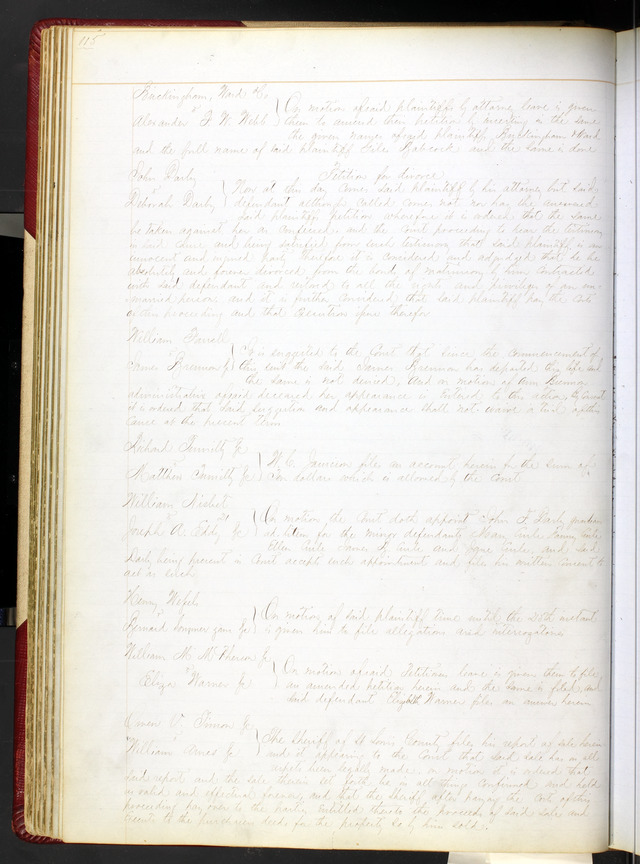 115
Buckingham, Ward &c
vs
Alexander & J. W. Webb
On motion aforsaid plaintiffs by attorney leave is given
them to amend their petition by inserting in the same
the given names aforsaid plaintiffs Buckingham & Ward
and the full name of said plaintiff Babcock and the same is done
John Darby
vs
Deborah Darby
Petition for divorce
Now at this day comes said plaintiff by his attorney but said
defendant although called comes not nor has she answered
said plaintiffs petition wherefore it is ordered that the same
be taken against her as confessed and the Court proceeding to hear the testimony
in said cause and being satisfied from such testimony that said plaintiff is an
innocent and injured party therefore it is considered and adjudged that he be
absolutely and forever divorced from the bonds of matrimony by him contracted
with said defendant and restored to all the rights and privileges of an un-
married person and it is further considered that said plaintiff pay the costs
of this proceeding and that Execution issue therefor
William Farrell
vs
James Brennan &c
It is suggested to the Court that since the commencement of
this suit the said James Brennan has departed this life and
the same is not denied, and on motion of Ann Brennan
administratrix aforsaid deceased her appearance is entered to this action by consent
it is ordered that said suggestion and appearance shall not waive a trial of this
cause at the present term
Richard &c
vs
Matthew &c
W. C. Jamison files an account herein for the sum of
dollars which is allowed by the Court
William Nisbet
vs
Joseph A. Eddy &c
On motion the Court doth appoint John F. Darby guardian
ad litem for the minor defendants
Ellen James and and said
Darby being present in Court accepts such appointment and files his written consent to
act as such
Henry
vs
Bernard &c
On motion of said plaintiff time until the 20th instant
is given him to file allegations and interrogatories
William M. McPherson &c
vs
Eliza Warner &c
On motion aforsaid Petitioners leave is given them to file
an amended petition herein and the same is filed, and
said defendant Elizabeth Warner files an answer herein
Owen V. Timon &c
vs
William Ames &c
The Sheriff of St Louis County files his report of sale herein
and it appearing to the Court that said sale has in all
respects been legally made on motion it is ordered that
said report and the sale therein set forth be in all things confirmed and held
as valid and effectual forever and that the Sheriff after paying the costs of this
proceeding pay over to the parties entitled thereto the proceeds of said sale and
execute to the purchasers deeds for the property so by him sold.